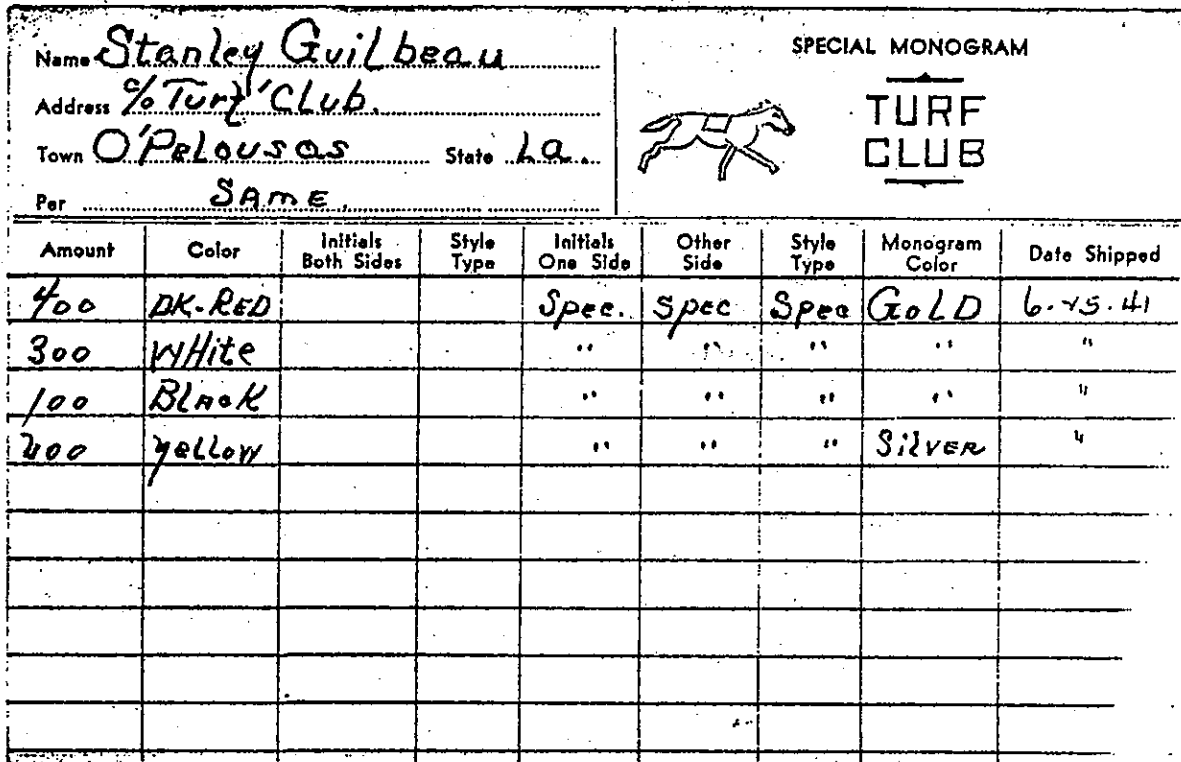 Name Stanley Guilbeau
Address c/o Turf Club.
Town O'Pelousas State La.
Per SAME.
SPECIAL MONOGRAM
TURF
CLUB
Amount Color Initials Both Sides Style Type Initials One Side Other Side Style Type Monogram Color Date Shipped
400 DK-RED Spec. Spec Spec GOLD 6. 41
300 WHite " " " " "
100 BLAcK " " " " "
yellow " " " SilvER "